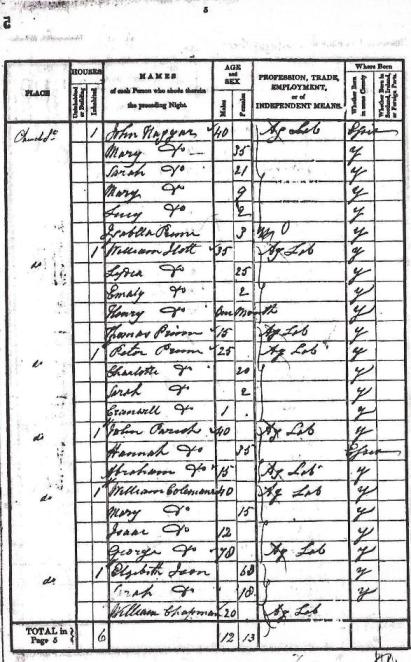 5
5
PLACE
HOUSES
Uninhabited or Building
Inhabited
NAMES
of each Person who abode therein the preceding Night.
AGE and SEX
Males
Females
PROFESSION, TRADE, EMPLOYMENT, or of INDEPENDENT MEANS.
Where Born
Whether Born in same County
Whether Born in Scotland, Ireland, or Foreign Parts.
Church St 1 John 40 Ag Lab
Mary Do 35 y
Sarah Do 21 y
Mary Do 9 y
Lucy Do 2 y
Isabella 3 y
do 1 William 35 Ag Lab y
Lydia Do 25 y
Emaly Do 2 y
Henry Do One Month y
Thomas 15 Ag Lab y
do 1 Peter 25 Ag Lab y
Charlotte Do 20 y
Sarah Do 2 y
Do 1 y
do 1 John Parish 40 Ag Lab y
Hannah Do 35
Abraham Do 15 Ag Lab y
do 1 William Coleman 40 Ag Lab y
Mary Do 15 y
Isaac Do 12 y
George Do 78 Ag Lab y
do 1 Elizabeth 68 y
Sarah Do 18 y
William Chapman 20 Ag Lab
TOTAL in Page 5 6 12 13